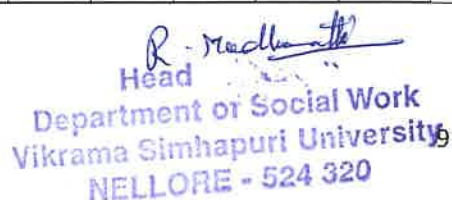 Head
Department of Social Work
Vikrama Simhapuri University
9
NELLORE - 524 320